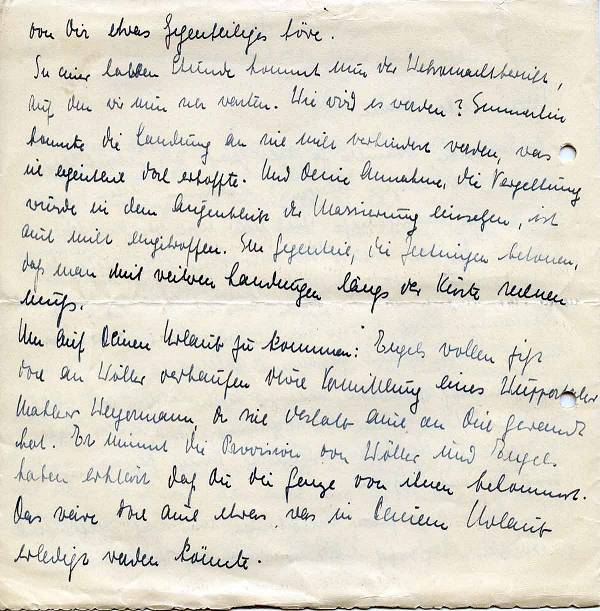 von Dir etwas Gegenteiliges höre.
In einer halben Stunde kommt nun der Wehrmachtsbericht,
auf den wir nun warten. Wie wird es werden? Immerhin
konnte die Landung an sich nicht verhindert werden, was
ich eigentlich doch erhoffte. Und Deine Annahme, die Vergeltung
würde in dem Augenblick der Massierung einsetzen, ist
auch nicht eingetroffen. Im Gegenteil, die Zeitungen betonen,
daß man mit weiteren Landungen längs der Küste rechnen
muß.
Um auf Deinen Urlaub zu kommen: Engels wollen jetzt
doch an Wöller verkaufen durch Vermittlung eines Wuppertaler
Maklers Weyermann, der sich deshalb auch an Dich gewandt
hat. Er nimmt die Provision von Wöller und Engels
haben erklärt daß Du die ganze von ihnen bekommst.
Das wäre doch auch etwas, was in Deinem Urlaub
erledigt werden könnte.